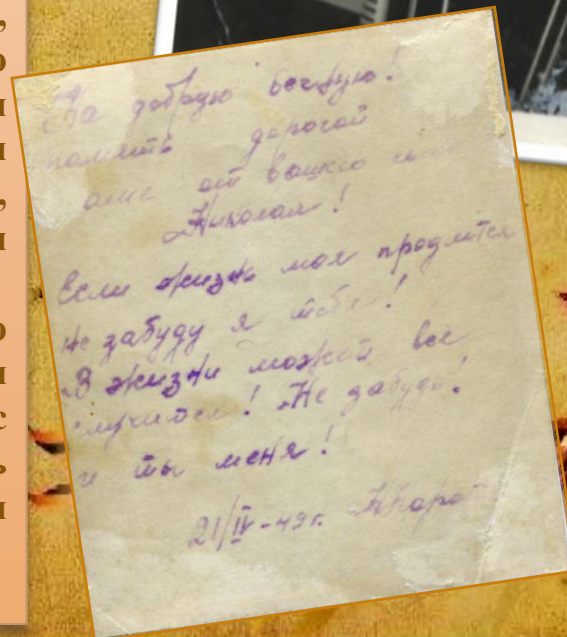 На добрую вечную!
память дорогой
маме от вашего сына
Николая!
Если жизнь моя продлится
не забуду я тебя!
В жизни может все
случится! Не забудь!
и ты меня!
21/IV-49г.
,
о
и
и
,
и
о
и
с
ь
и